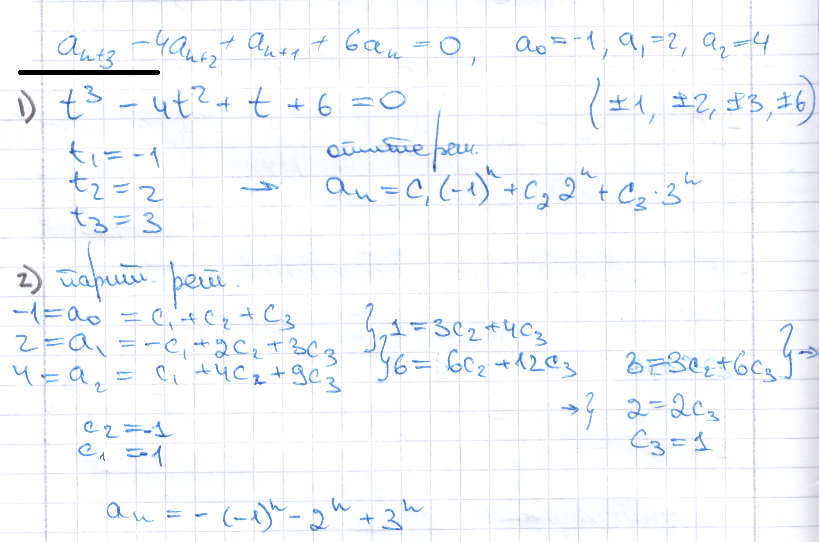 aₙ₊₃ - 4aₙ₊₂ + aₙ₊₁ + 6aₙ = 0, a₀ = -1, a₁ = 2, a₂ = 4
1) t³ - 4t² + t + 6 = 0 (±1, ±2, ±3, ±6)
t₁ = -1
t₂ = 2 → aₙ = C₁(-1)ⁿ + C₂ 2ⁿ + C₃·3ⁿ
t₃ = 3
2) реш.
-1 = a₀ = c₁ + c₂ + c₃
2 = a₁ = -c₁ + 2c₂ + 3c₃
4 = a₂ = c₁ + 4c₂ + 9c₃
} 1 = 3c₂ + 4c₃
} 6 = 6c₂ + 12c₃ 3 = 3c₂ + 6c₃ } →
→ } 2 = 2c₃
C₃ = 1
c₂ = -1
c₁ = -1
aₙ = -(-1)ⁿ - 2ⁿ + 3ⁿ